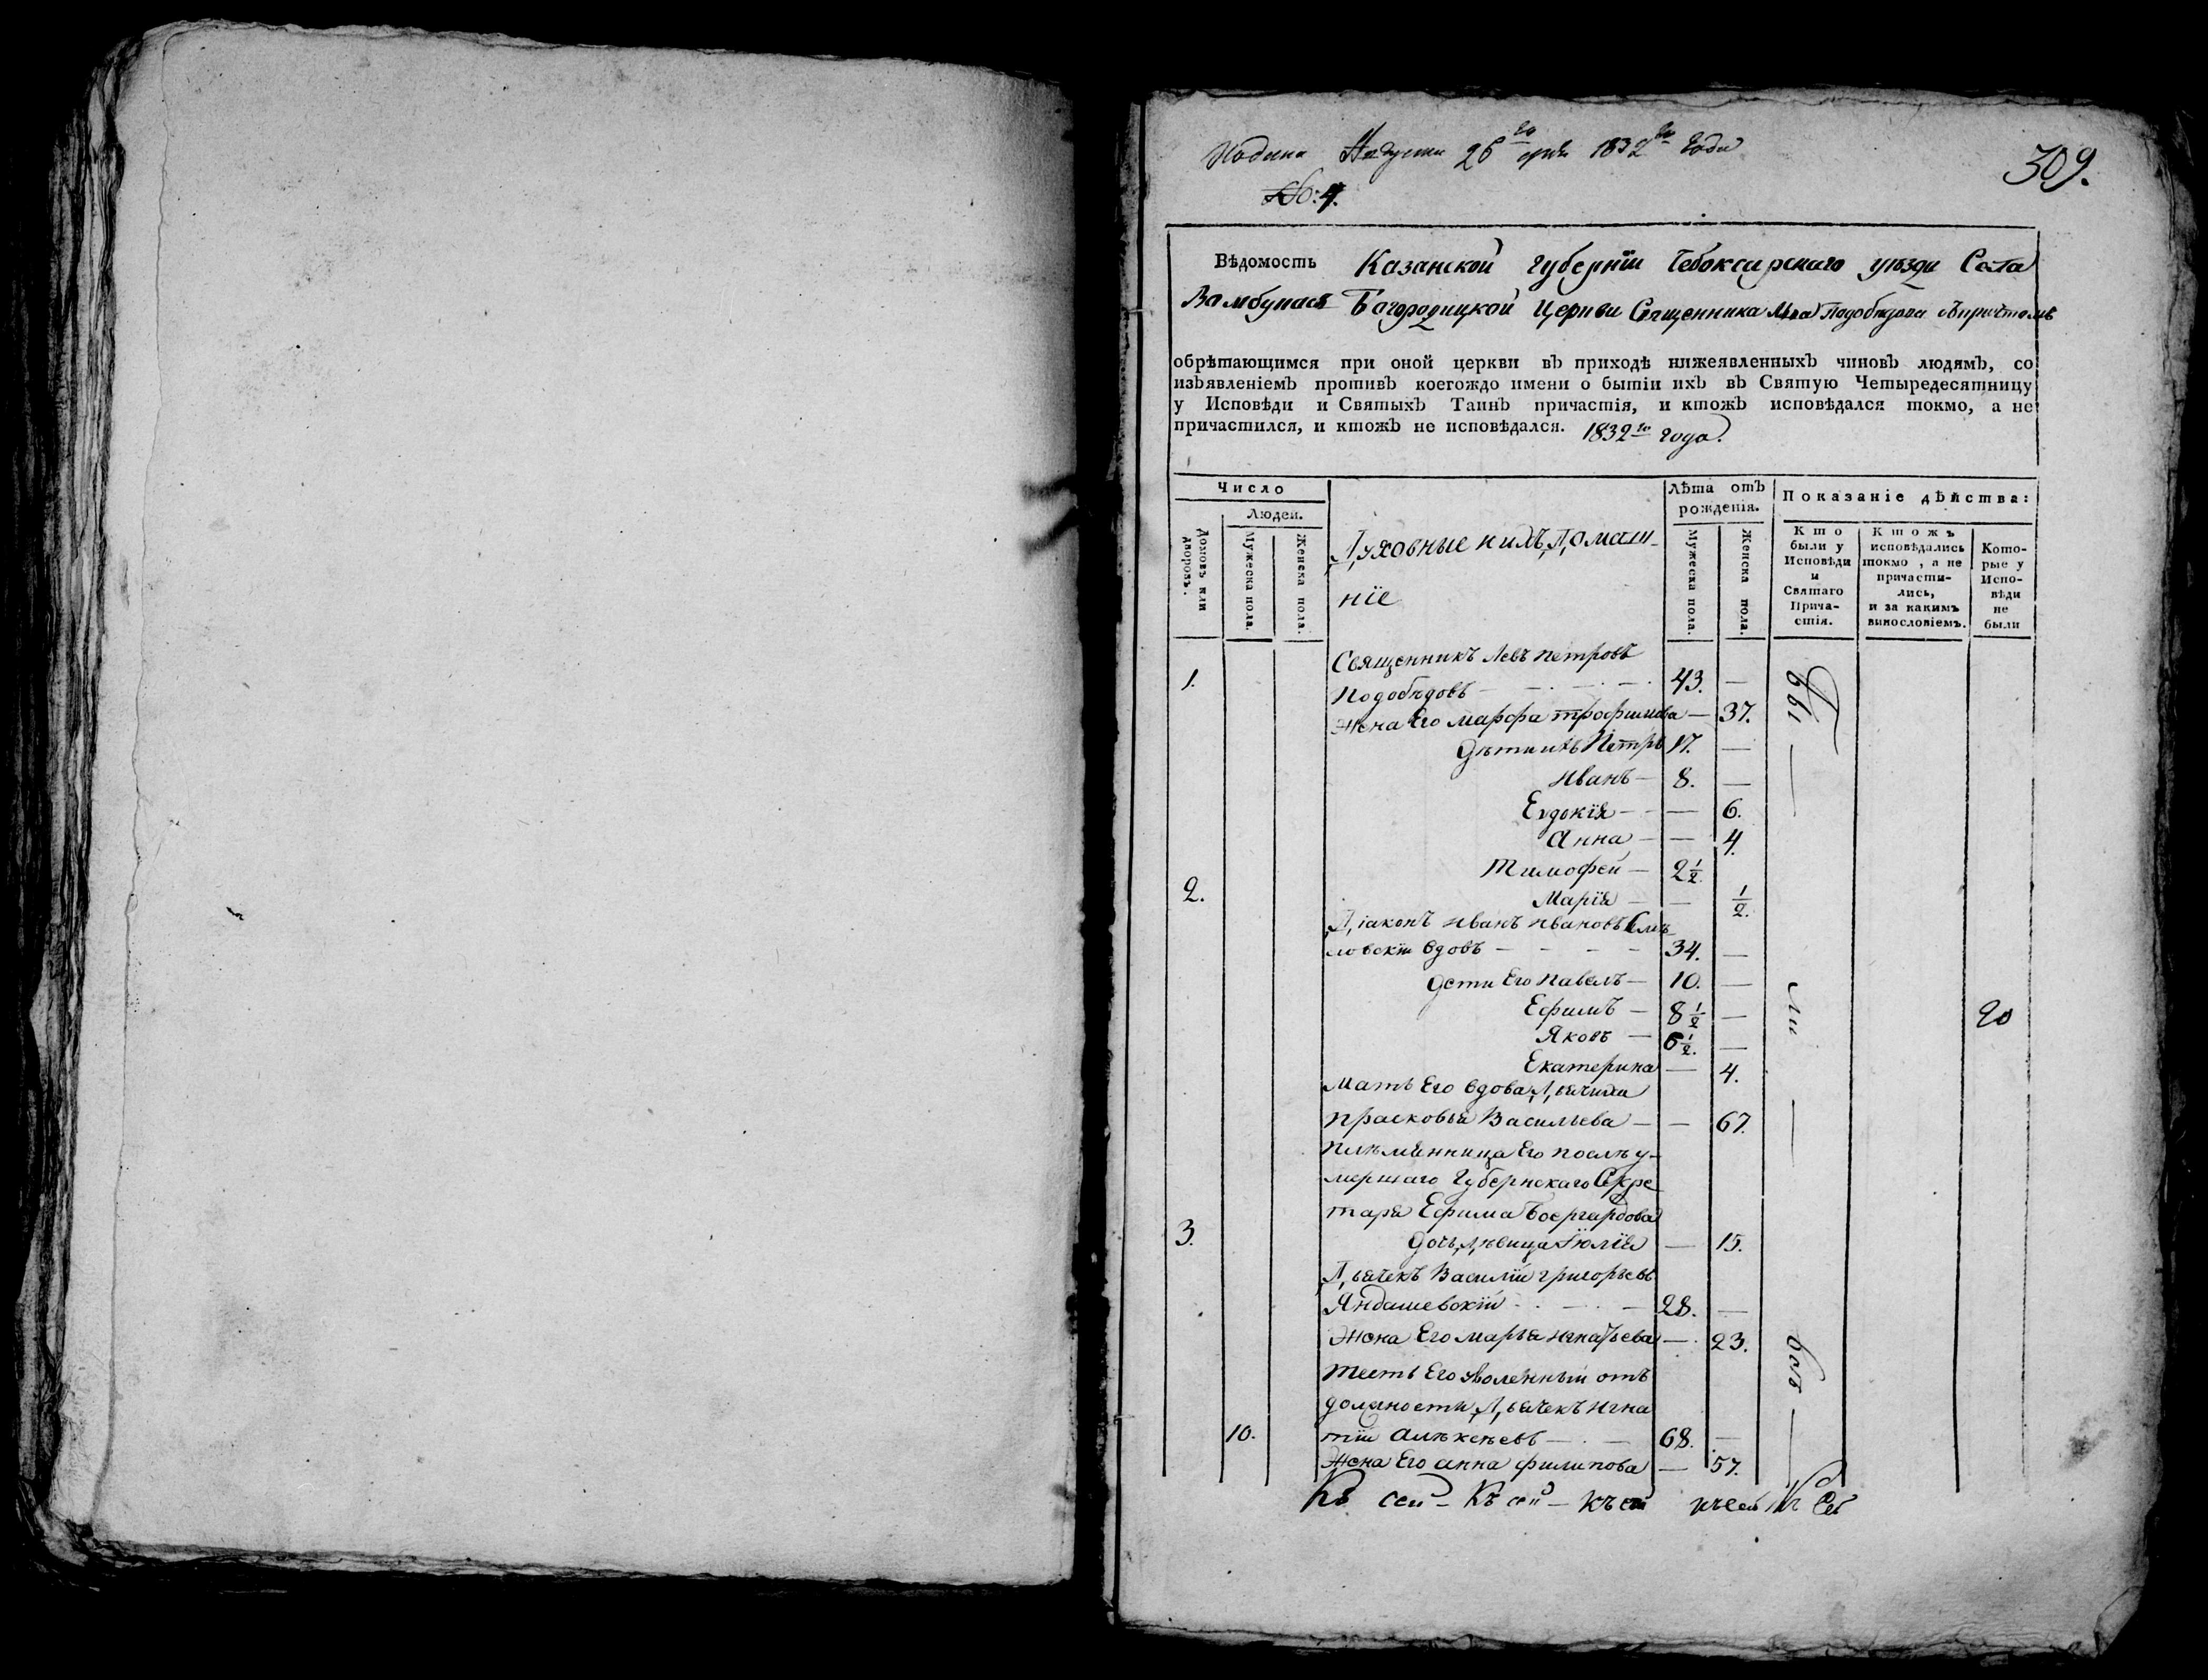 Подана Августа 26го дня 1832го года
309.
№: 4.
Вѣдомость Казанской губернїи Чебоксарскаго уѣзда Села
Богородицкой Церкви Священника Льва Подобѣдова съ причтомъ
обрѣтающимся при оной церкви въ приходѣ нижеявленныхъ чиновъ людямъ, со
изъявленіемъ противъ коегождо имени о бытіи ихъ въ Святую Четыредесятницу
у Исповѣди и Святыхъ Таинъ причастія, и ктожъ исповѣдался токмо, а не
причастился, и ктожъ не исповѣдался. 1832го года.
Число
Людей.
Домовъ или дворовъ.
Мужеска пола.
Женска пола.
Духовные и ихъ Домаш-
нїе
Лѣта отъ
рожденія.
Мужеска пола.
Женска пола.
Показаніе дѣйства:
Кто
были у
Исповѣди
и
Святаго
Прича-
стія.
Ктожъ
исповѣдались
токмо, а не
причасти-
лись,
и за какимъ
винословіемъ.
Кото-
рые у
Испо-
вѣди
не
были
Священникъ Левъ Петровъ
1. Подобѣдовъ — 43. —
Жена Его Марфа Трофимова — 37.
Дѣти ихъ Петръ 17. —
Иванъ — 8. —
Евдокїя — — 6.
Анна — — 4.
Тимофей — 2½.
2. Марїя — — ½.
Дїаконъ Иванъ Ивановъ
ловскїй вдовъ — 34. —
Дети Его Павелъ — 10. —
Ефимъ — 8½ —
Яковъ — 6½. —
Екатерина — 4.
Мать Его вдова Дьячиха
Прасковья Васильева — — 67.
Племянница Его послѣ у-
мершаго Губернскаго Секре
таря Ефима
3. дочь Дѣвица Їюлїя — 15.
Дьячекъ Василїй Григорьевъ
Яндашевскїй — 28. —
Жена Его Марья Игнатьева — 23.
Тесть Его уволенный отъ
должности Дьячекъ Игна
10. тїй Алѣксѣевъ — 68. —
Жена Его Анна Филипова — 57.
бы — ли — —
20
Къ сей — Къ сей — Къ сей Къ сей Къ Сей